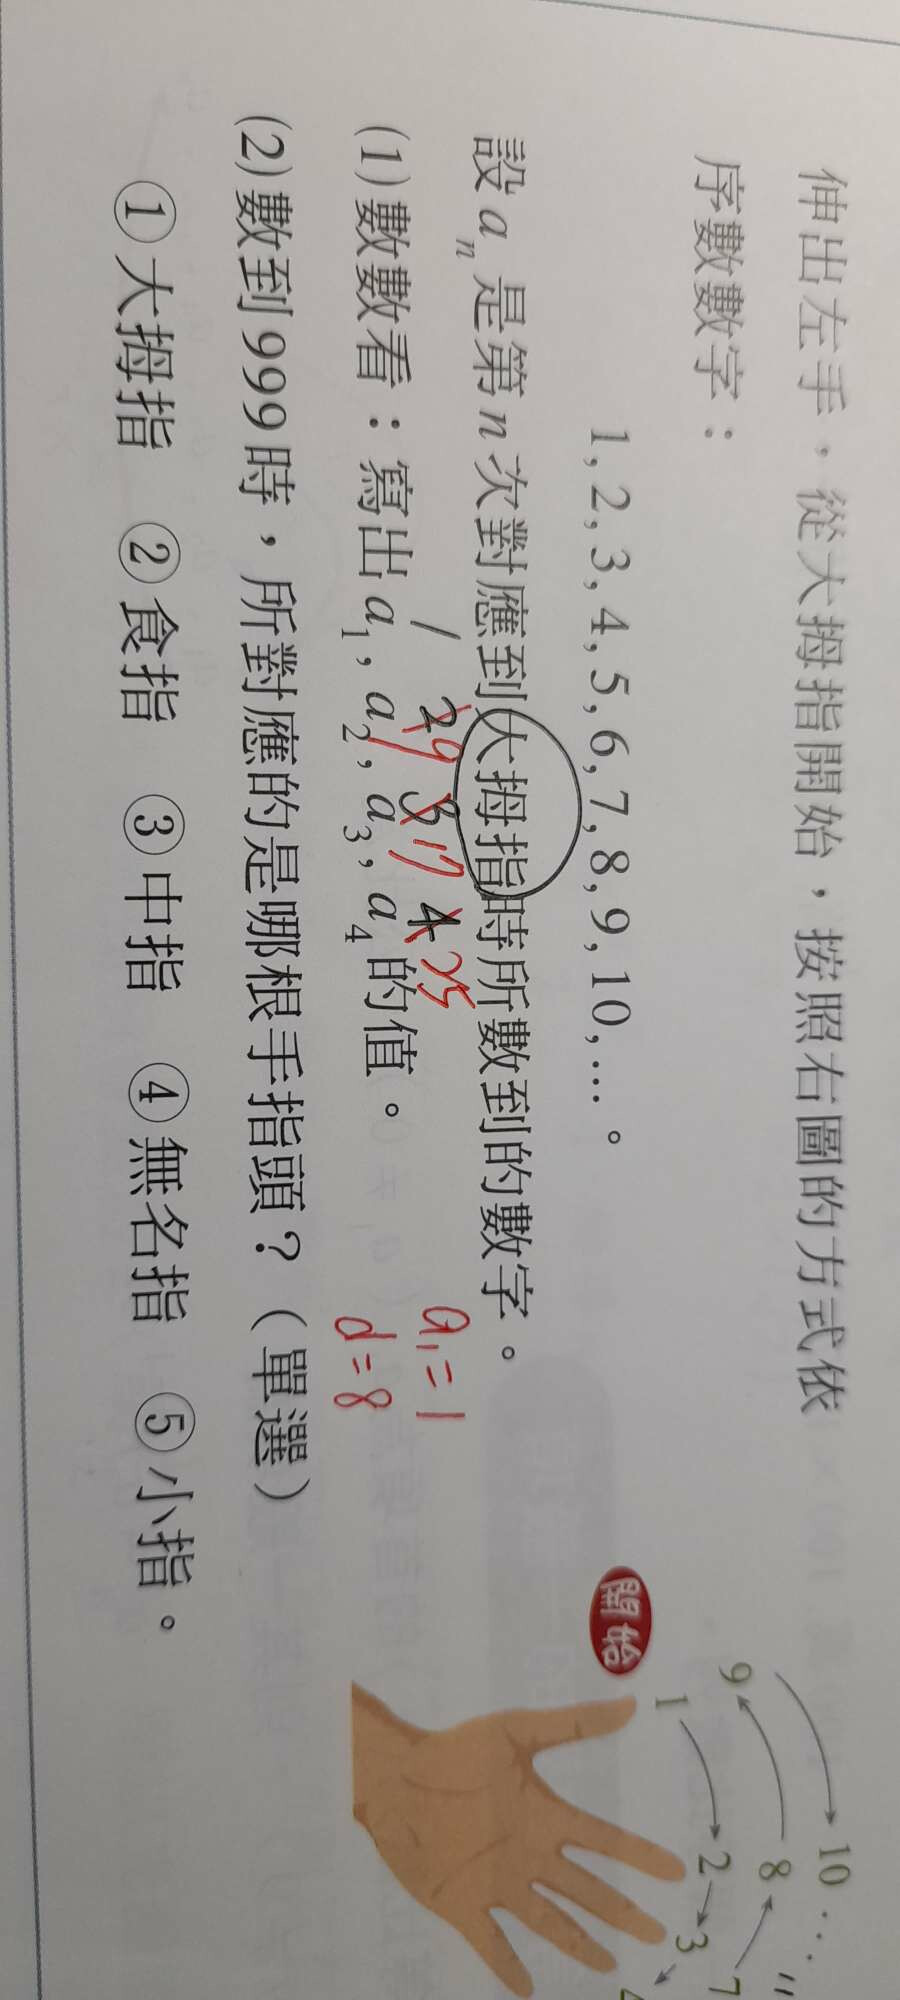 伸出左手，從大拇指開始，按照右圖的方式依
序數數字：
1, 2, 3, 4, 5, 6, 7, 8, 9, 10, …。
設 aₙ 是第 n 次對應到大拇指時所數到的數字。
1 2 9 3 17 4 25
a₁ = 1
(1) 數數看：寫出 a₁, a₂, a₃, a₄ 的值。
d = 8
(2) 數到 999 時，所對應的是哪根手指頭？（單選）
①大拇指 ②食指 ③中指 ④無名指 ⑤小指。
開始
10 …
9 8 7
1 2 3 4